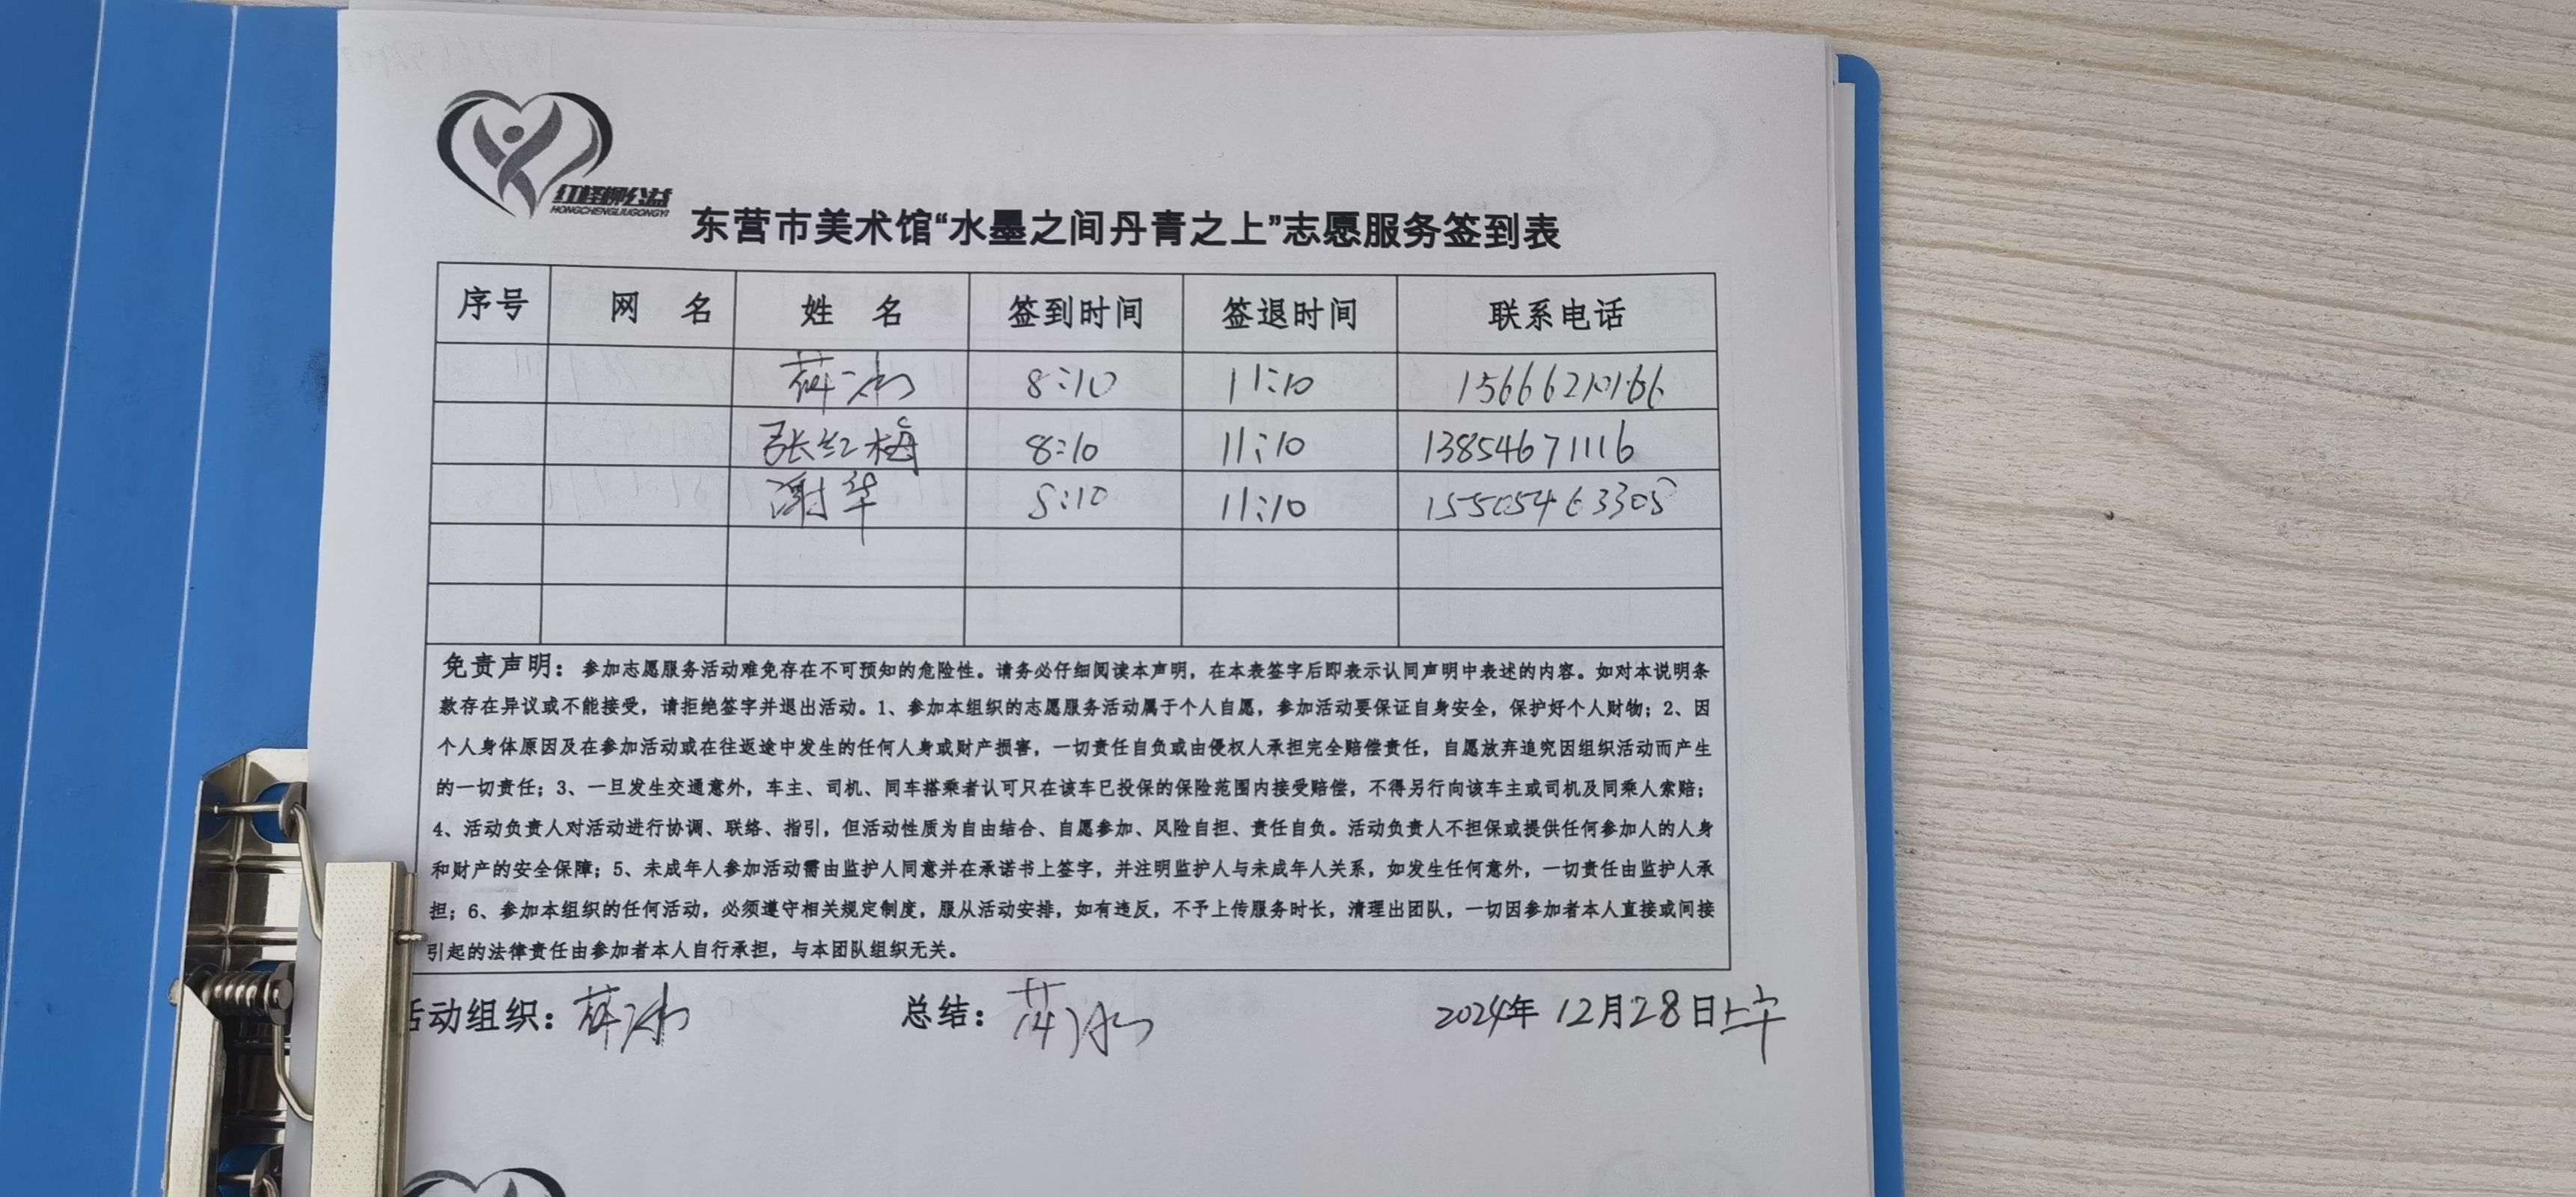 红柽柳公益
HONGCHENGLIUGONGYI
东营市美术馆“水墨之间丹青之上”志愿服务签到表
序号 网 名 姓 名 签到时间 签退时间 联系电话
薛冰 8:10 11:10 15666210166
张红梅 8:10 11:10 13854671116
谢华 8:10 11:10 15505463308
免责声明：参加志愿服务活动难免存在不可预知的危险性。请务必仔细阅读本声明，在本表签字后即表示认同声明中表述的内容。如对本说明条
款存在异议或不能接受，请拒绝签字并退出活动。1、参加本组织的志愿服务活动属于个人自愿，参加活动要保证自身安全，保护好个人财物；2、因
个人身体原因及在参加活动或在往返途中发生的任何人身或财产损害，一切责任自负或由侵权人承担完全赔偿责任，自愿放弃追究因组织活动而产生
的一切责任；3、一旦发生交通意外，车主、司机、同车搭乘者认可只在该车已投保的保险范围内接受赔偿，不得另行向该车主或司机及同乘人索赔；
4、活动负责人对活动进行协调、联络、指引，但活动性质为自由结合、自愿参加、风险自担、责任自负。活动负责人不担保或提供任何参加人的人身
和财产的安全保障；5、未成年人参加活动需由监护人同意并在承诺书上签字，并注明监护人与未成年人关系，如发生任何意外，一切责任由监护人承
担；6、参加本组织的任何活动，必须遵守相关规定制度，服从活动安排，如有违反，不予上传服务时长，清理出团队，一切因参加者本人直接或间接
引起的法律责任由参加者本人自行承担，与本团队组织无关。
活动组织：薛冰 总结：薛冰 2024年12月28日上午